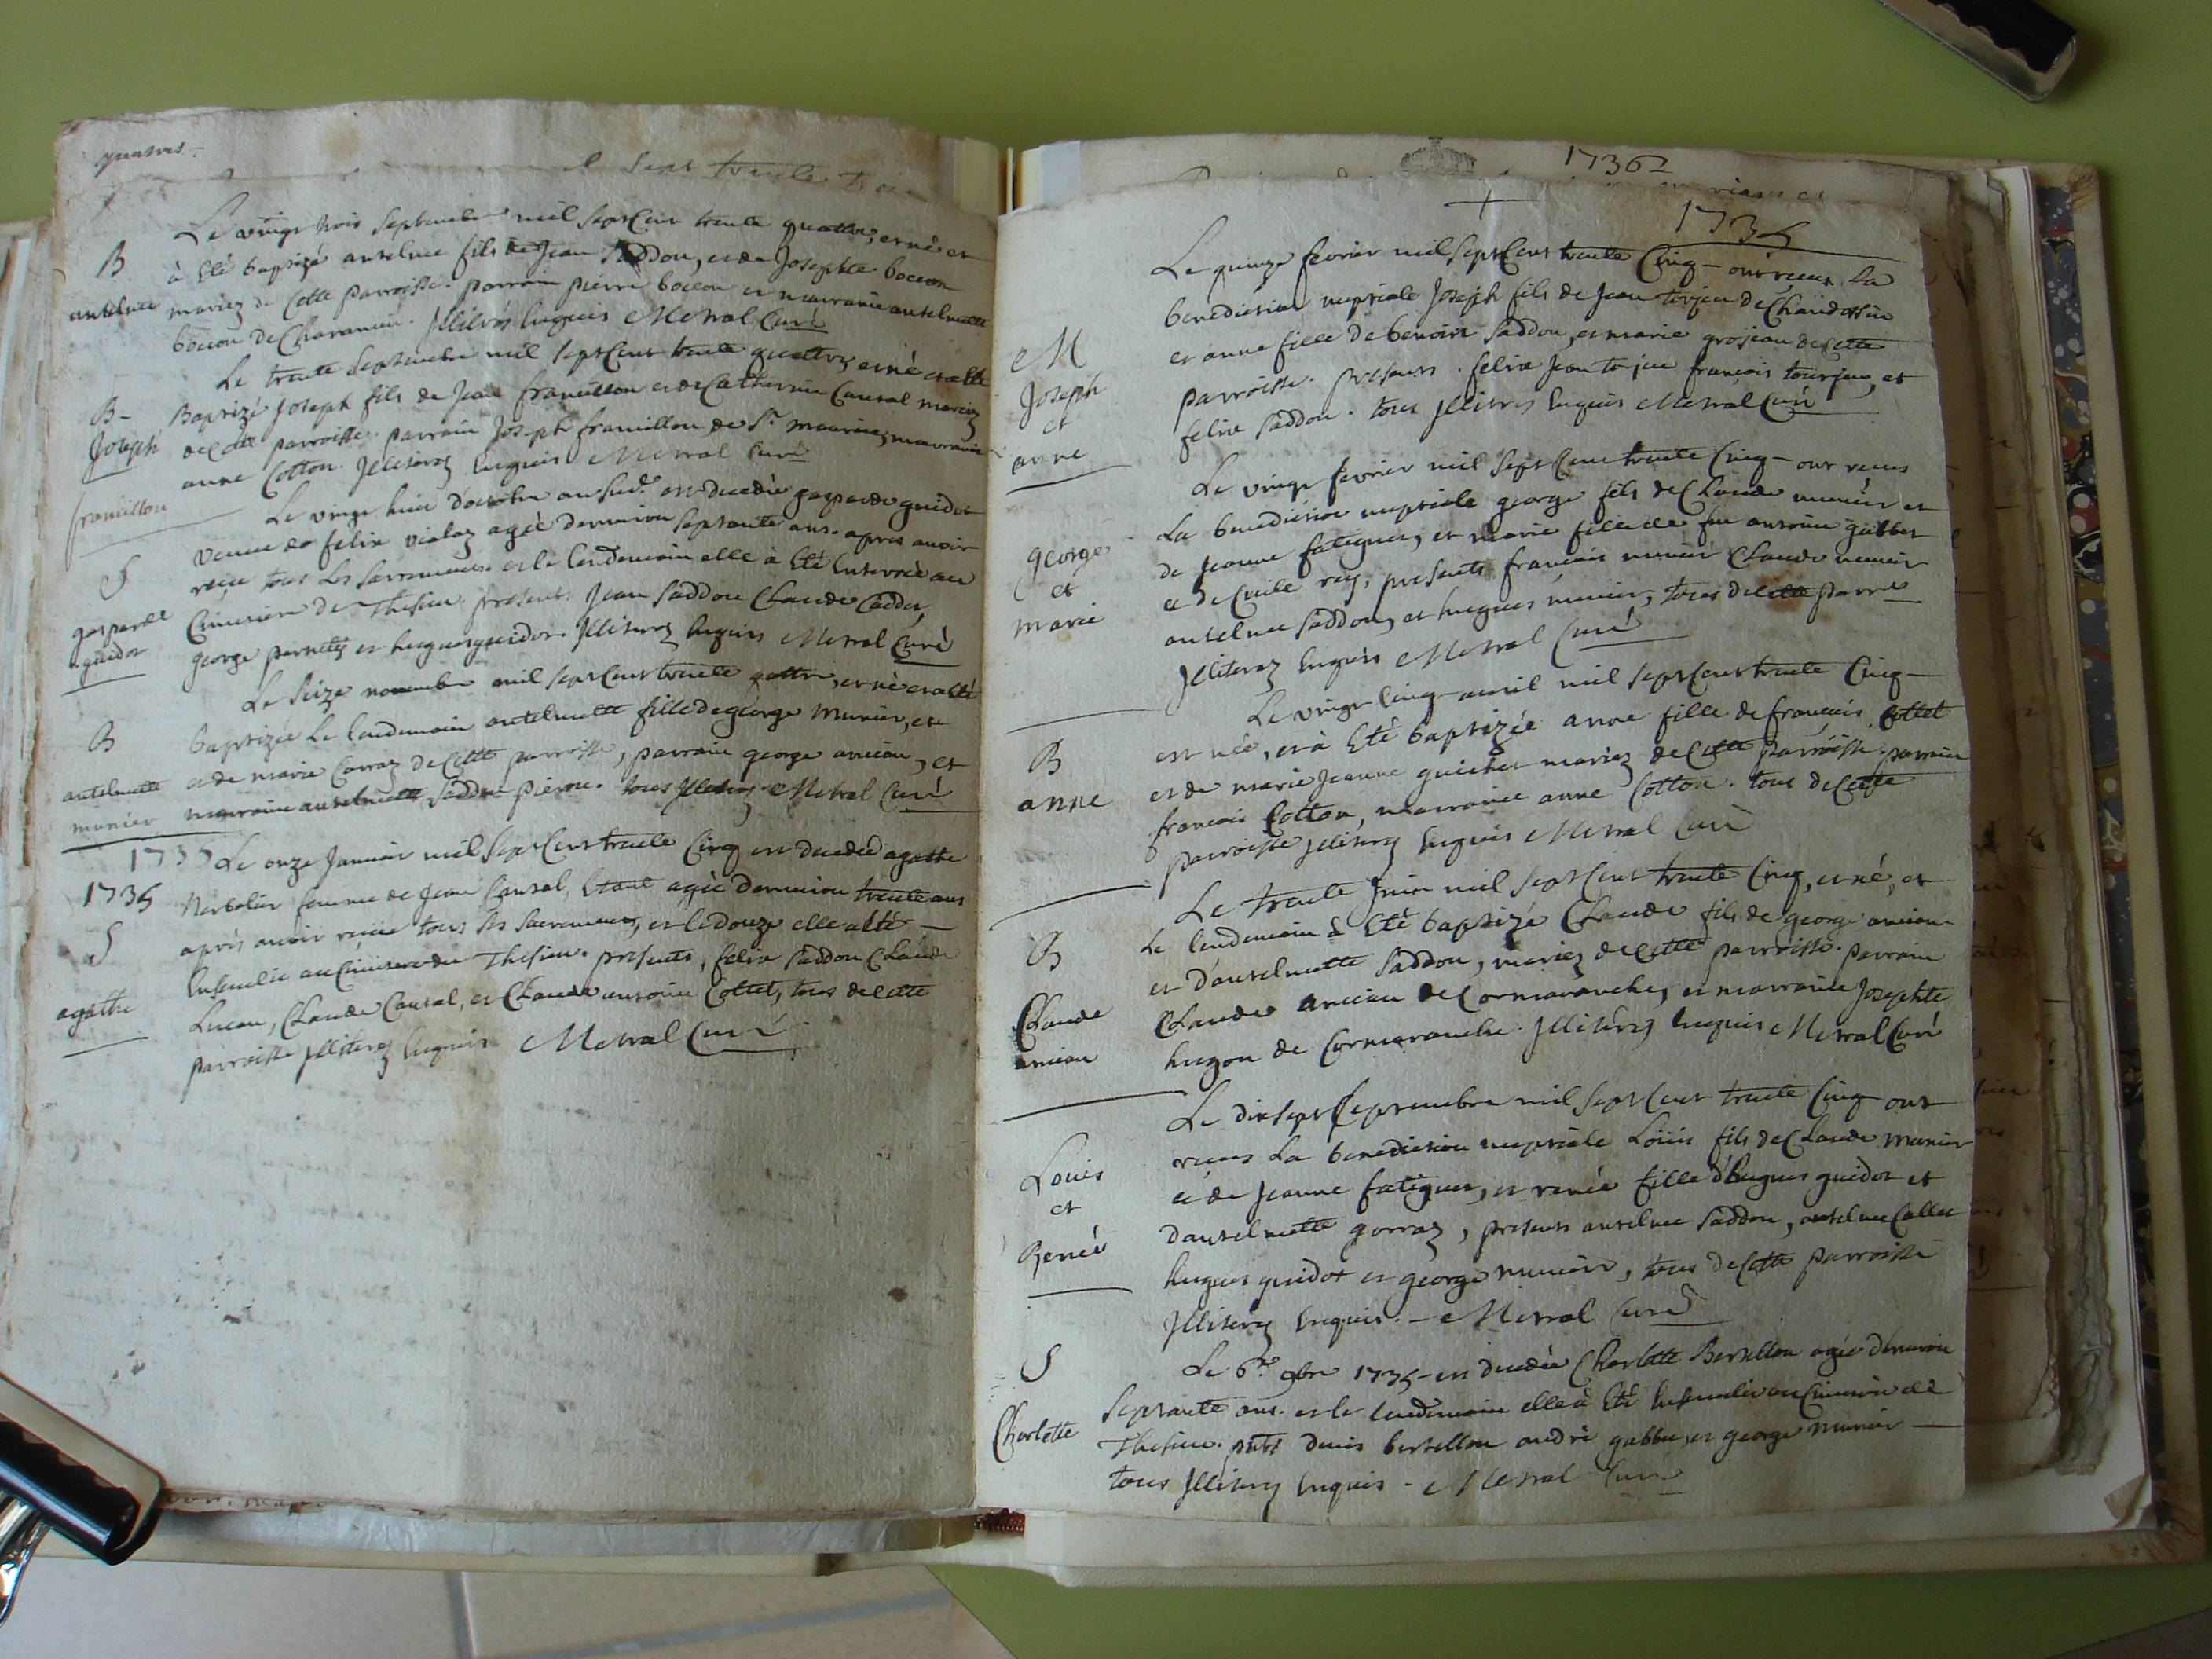 quatres.
sept trente troi
Le vingt trois Septembre mil Sept Cent trente quattre, est né et
B
à Eté baptizé antelme fils de Jean Saddon, et de Josephte boccon
antelme
mariez de Cette parroisse. parrain pierre boccon et marraine antelmette
boccon de Charancin. Illiterés Enquis Metral Curé
Le trente Septembre mil Sept Cent trente quattre est né et a Eté
B-
Baptizé Joseph fils de Jean framillon et de Catherine Causal mariez
Joseph
de Cette parroisse. parrain Joseph framillon de St. maurice, marraine
framillon
anne Cotton. Illiterez Enquis Metral Curé
Le vingt huit d'octobre an Susd. est decedée gasparde guidot
S
veuve de felix violaz agée denviron septante ans. apres avoir
gasparde
reçu tous Les Sacrements. et le lendemain elle à Eté Enterrée au
guidot
Cimetiere de Thesieu. presents Jean Saddon Claude Caddoz,
george pernettez et hugues guidot. Illiterez Enquis Metral Curé
Le Seize novembre mil Sept Cent trente quattre, est née et a Eté
B
baptizée Le lendemain antelmette fille de george Munier, et
antelmette
et de marie Carraz de Cette parroisse, parrain george ancian, et
munier
marraine antelmette Saddon pierou. tous Illiterez Metral Curé
1735
Le onze Janvier mil Sept Cent trente Cinq est decedée agathe
1735
femme de Jean Causal, Etant agée denviron trente ans
S
après avoir reçüe tous Les Sacrements, et le douze elle a Eté -
agathe
Ensevelie au Cimitiere de Thesieu. presents, felix Saddon Claude
Lucan, Claude Causal, et Claude antoine Cottet, tous de Cette
parroisse Illiterez Enquis Metral Curé
17362
1735
Le quinze fevrier mil Sept Cent trente Cinq - ont receus La
M
benediction nuptiale Joseph fils de Jean torjeu de Chandossin
Joseph
et anne fille de benoit Saddon, et marie grosjean de Cette
et
parroisse. presents. felix Jean torjeu françois tourjeu, et
anne
felix Saddon. tous Illiterez Enquis Metral Curé
Le vingt fevrier mil Sept Cent trente Cinq - ont receus
La benediction nuptiale george fils de Claude munier et
george
de Jeanne fatiguet, et marie fille de feu antoine gubbet
et
et de Cecile rey, presents françois munier Claude munier
marie
antelme Saddon, et hugues munier, tous de cette parroisse
Illiterez Enquis Metral Curé
Le vingt Cinq avril mil Sept Cent trente Cinq -
B
est née, et à Eté baptizée anne fille de francois Cottet
anne
et de marie Jeanne guichet mariez de Cette parroisse. parrain
francois Cotton, marraine anne Cotton. tous de Cette
parroisse Illiterez Enquis Metral Curé
Le trente Juin mil Sept Cent trente Cinq, est né, et
B
Le lendemain à Eté baptizé Claude fils de george ancian
Claude
et d'antelmette Saddon, mariez de Cette parroisse. parrain
ancian
Claude ancian de Cormaranche, et marraine Josephte
hugon de Cormaranche. Illiterez Enquis Metral Curé
Le dix sept Septembre mil Sept Cent trente Cinq ont
Louis
receus La benediction nuptiale Loüis fils de Claude Munier
et
et de Jeanne fatiguet, et renée fille d'hugues guidot et
Renée
d'antelmette gorraz, presents antelme Saddon, antelme Callet
hugues guidot et george munier, tous de Cette parroisse
Illiterez Enquis. - Metral Curé
S
Le 6me 9bre 1735 - est decedée Charlotte Bertillon agée d'environ
Charlotte
Septante ans. et le lendemain elle à Eté Ensevelie au Cimitiere de
Thesieu. pnts denis bertillon andré gubbet, et george munier -
tous Illiterez Enquis - Metral Curé